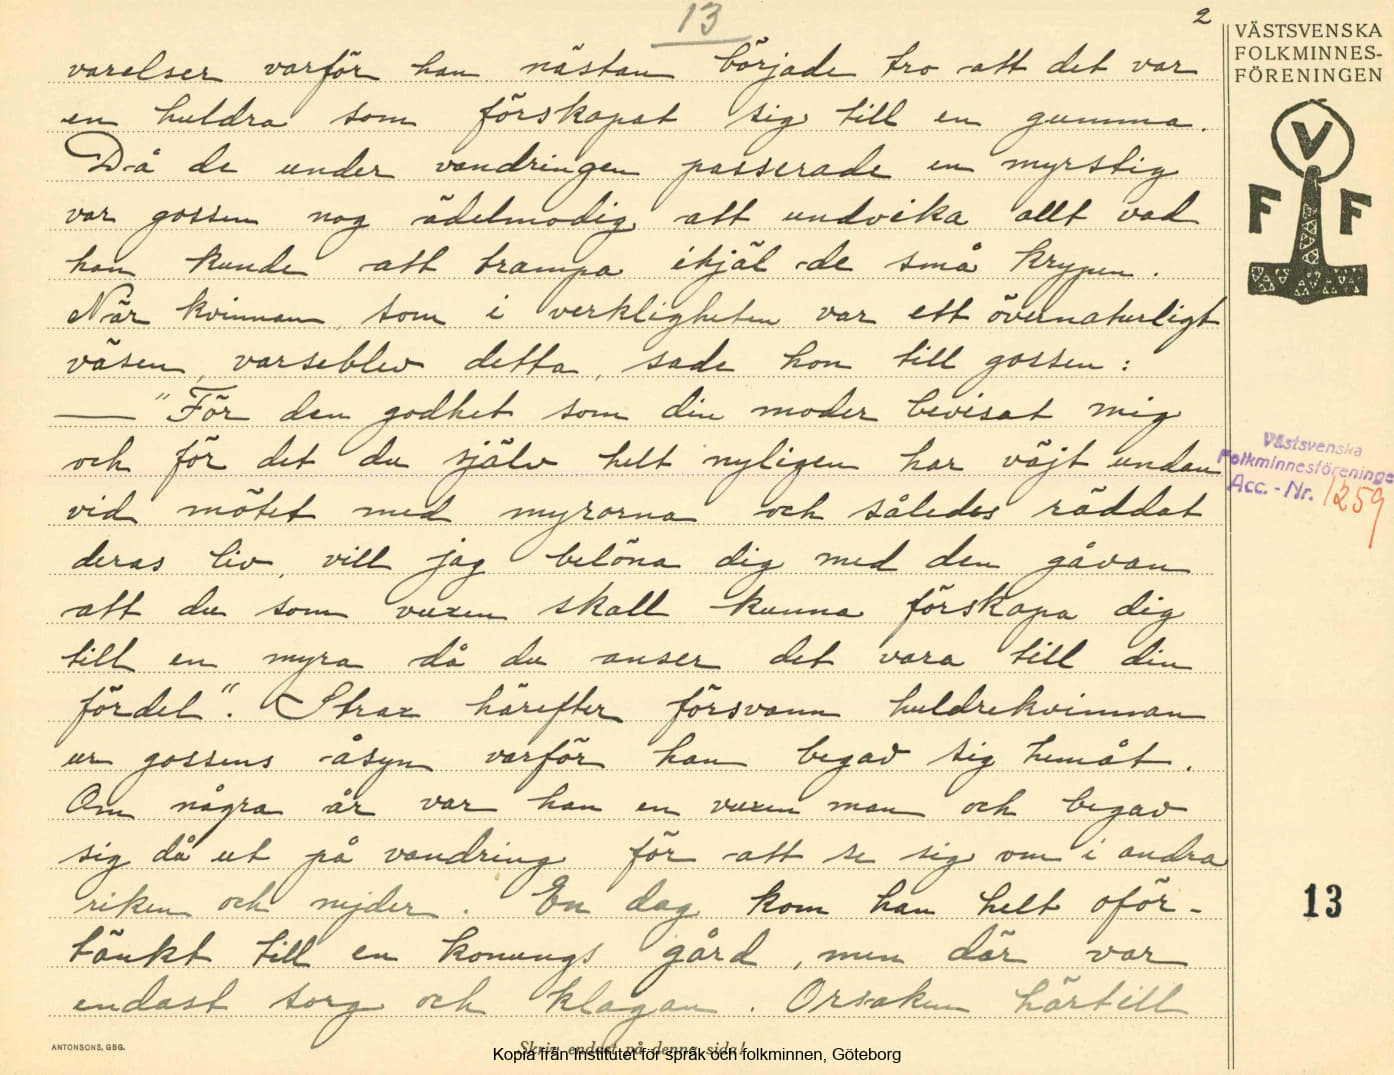 13
2
varelser varför han nästan började tro att det var
en huldra som förskapat sig till en gumma.
Då de under vandringen passerade en myrstig
var gossen nog ädelmodig att undvika allt vad
han kunde att trampa ihjäl de små krypen.
När kvinnan, som i verkligheten var ett övernaturligt
väsen, varseblev detta, sade hon till gossen:
— "För den godhet som din moder bevisat mig
och för det du själv helt nyligen har väjt undan
vid mötet med myrorna och således räddat
deras liv, vill jag belöna dig med den gåvan
att du som vuxen skall kunna förskapa dig
till en myra då du anser det vara till din
fördel". Strax härefter försvann huldrekvinnan
ur gossens åsyn varför han begav sig hemåt.
Om några år var han en vuxen man och begav
sig då ut på vandring för att se sig om i andra
riken och nejder. En dag kom han helt oför-
tänkt till en konungs gård, men där var
endast sorg och klagan. Orsaken härtill
VÄSTSVENSKA
FOLKMINNES-
FÖRENINGEN
V
F F
Västsvenska
Folkminnesföreninge
Acc. - Nr. 1259
13
ANTONSONS, GBG.
Skriv endast på denna sida!
Kopia från Institutet för språk och folkminnen, Göteborg